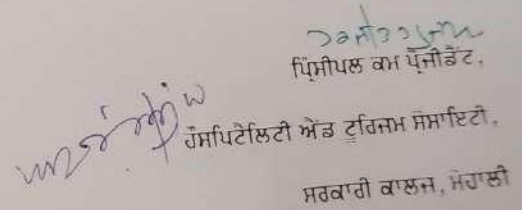 ਪ੍ਰਿੰਸੀਪਲ ਕਮ ਪ੍ਰੈਜੀਡੈਂਟ,
ਹੌਸਪਿਟੇਲਿਟੀ ਐਂਡ ਟੂਰਿਜਮ ਸੋਸਾਇਟੀ,
ਸਰਕਾਰੀ ਕਾਲਜ, ਮੋਹਾਲੀ